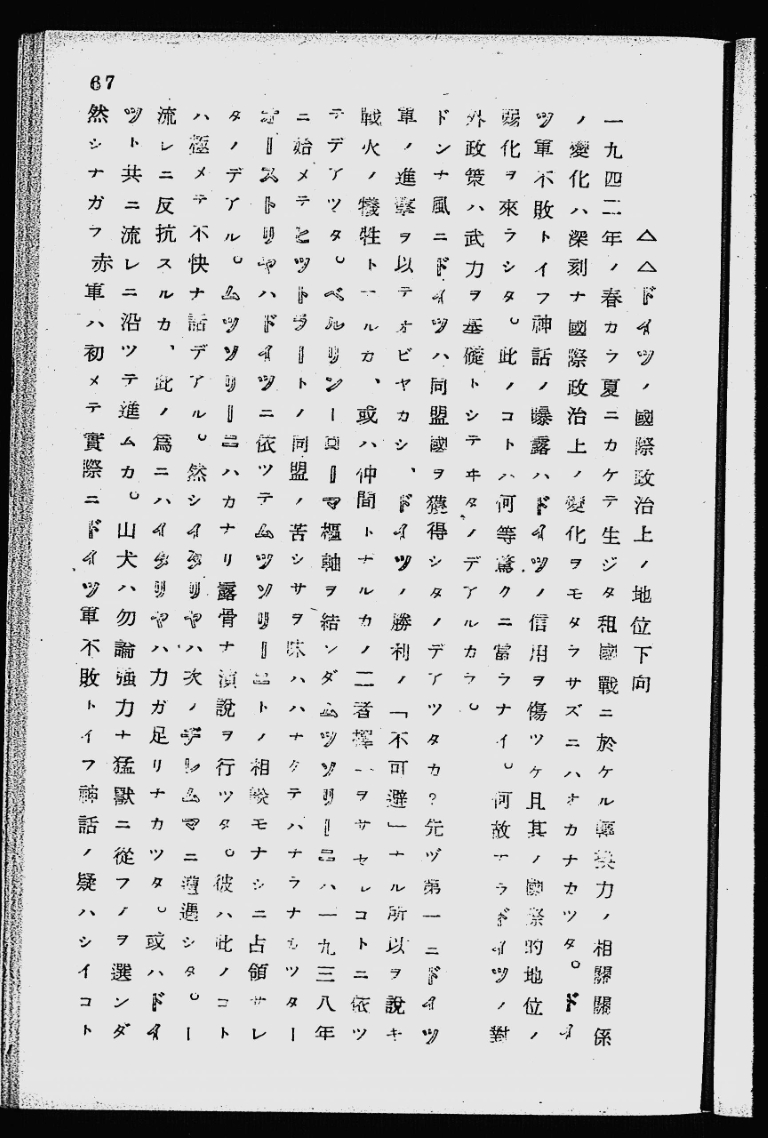 67
△△ドイツノ國際政治上ノ地位下向
一九四二年ノ春カラ夏ニカケテ生ジタ租國戰ニ於ケル 力ノ相關關係
ノ變化ハ深刻ナ國際政治上ノ變化ヲモタラサズニハオカナカツタ。ドイ
ツ軍不敗トイフ神話ノ曝露ハドイツノ信用ヲ傷ツケ且其ノ國際的地位ノ
弱化ヲ來ラシタ。此ノコトハ何等驚クニ當ラナイ。何故ナラドイツノ對
外政策ハ武力ヲ基礎トシテヰタノデアルカラ。
ドンナ風ニドイツハ同盟國ヲ獲得シタノデアツタカ?先ヅ第一ニドイツ
軍ノ進擊ヲ以テオビヤカシ、ドイツノ勝利ノ「不可避」ナル所以ヲ說キ
戰火ノ犧牲トナルカ、或ハ仲間トナルカノ二者擇一ヲサセルコトニ依ツ
テデアツタ。ベルリンーローマ樞軸ヲ結ンダムツソリーニハ一九三八年
ニ始メテヒツトラートノ同盟ノ苦シサヲ味ハハナクテハナラナカツターー
オーストリヤハドイツニ依ツテムツソリーニトノ相談モナシニ占領サレ
タノデアル。ムツソリーニハカナリ露骨ナ演說ヲ行ツタ。彼ハ此ノコト
ハ極メテ不快ナ話デアル。然シイタリヤハ次ノヂレムマニ遭遇シタ。ーー
流レニ反抗スルカ、此ノ爲ニハイタリヤハ力ガ足リナカツタ。或ハドイ
ツト共ニ流レニ沿ツテ進ムカ。山犬ハ勿論強力ナ猛獸ニ從フノヲ選ンダ
然シナガラ赤軍ハ初メテ實際ニドイツ軍不敗トイフ神話ノ疑ハシイコト